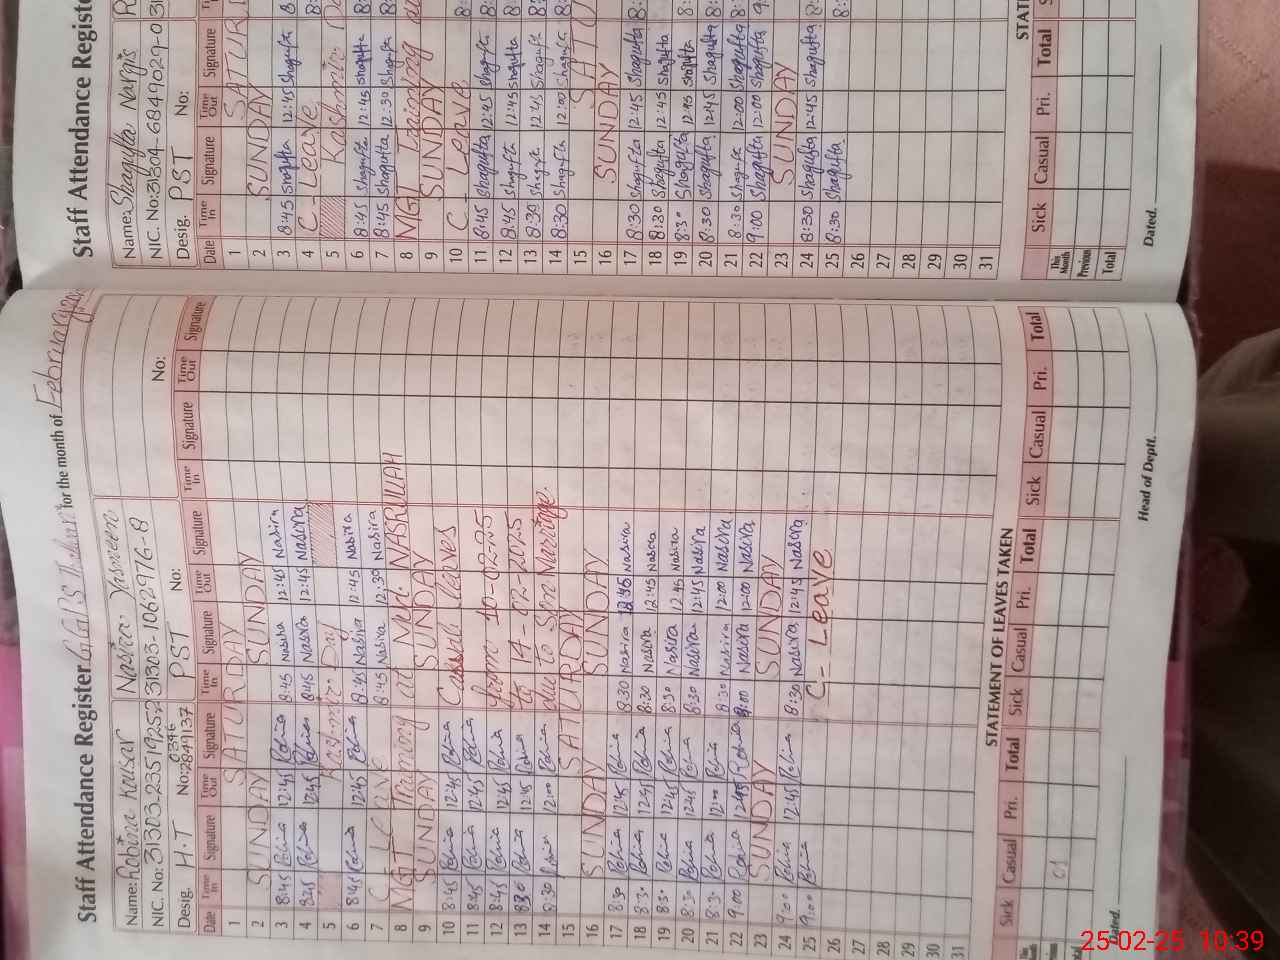 Staff Attendance Register G.G.P.S for the month of February
Name: Robina Kousar
NIC. No: 31303-2351925-2
Desig. H.T No: 2849137
Nasira Yasmeen
31303-1062976-8
PST No:
No:
Date Time In Signature Time Out Signature Time In Signature Time Out Signature Time In Signature Time Out Signature
1 SATURDAY
2 SUNDAY SUNDAY
3 8:45 Robina 12:45 Robina 8:45 Nasira 12:45 Nasira
4 8:45 Robina 12:45 Robina 8:45 Nasira 12:45 Nasira
5 Kashmir Day
6 8:45 Robina 12:45 Robina 8:45 Nasira 12:45 Nasira
7 C Leave 8:45 Nasira 12:30 Nasira
8 MGT Training at NASRULLAH
9 SUNDAY SUNDAY
10 8:45 Robina 12:45 Robina Casual leaves
11 8:45 Robina 12:45 Robina from 10-02-25
12 8:45 Robina 12:45 Robina to 14-02-2025
13 8:30 Robina 12:45 Robina due to Son Marriage.
14 8:30 Robina 12:00 Robina
15 SATURDAY
16 SUNDAY SUNDAY
17 8:30 Robina 12:45 Robina 8:30 Nasira 12:45 Nasira
18 8:30 Robina 12:45 Robina 8:30 Nasira 12:45 Nasira
19 8:30 Robina 12:45 Robina 8:30 Nasira 12:45 Nasira
20 8:30 Robina 12:45 Robina 8:30 Nasira 12:45 Nasira
21 8:30 Robina 12:00 Robina 8:30 Nasira 12:00 Nasira
22 9:00 Robina Robina 9:00 Nasira 12:00 Nasira
23 SUNDAY SUNDAY
24 9:00 Robina 12:45 Robina 8:30 Nasira 12:45 Nasira
25 9:00 Robina C- Leave
26
27
28
29
30
31
STATEMENT OF LEAVES TAKEN
Sick Casual Pri. Total Sick Casual Pri. Total Sick Casual Pri. Total
01
Dated.
Head of Deptt.
Staff Attendance Regist
Name: Shagufta Nargis
NIC. No: 31304-6849029-0
Desig. PST No:
Date Time In Signature Time Out Signature
1 SATUR
2 SUNDAY
3 8:45 Shagufta 12:45 Shagufta
4 C- Leave
5 Kashmir
6 8:45 Shagufta 12:45 Shagufta
7 8:45 Shagufta 12:30 Shagufta
8 MGT Training
9 SUNDAY
10 C Leave
11 8:45 Shagufta 12:45 Shagufta
12 8:45 Shagufta 12:45 Shagufta
13 8:30 Shagufta 12:45 Shagufta
14 8:30 Shagufta 12:00 Shagufta
15 SATU
16 SUNDAY
17 8:30 Shagufta 12:45 Shagufta
18 8:30 Shagufta 12:45 Shagufta
19 8:30 Shagufta 12:45 Shagufta
20 8:30 Shagufta 12:45 Shagufta
21 8:30 Shagufta 12:00 Shagufta
22 9:00 Shagufta 12:00 Shagufta
23 SUNDAY
24 8:30 Shagufta 12:45 Shagufta
25 8:30 Shagufta
26
27
28
29
30
31
STATE
Sick Casual Pri. Total
This Month
Previous
Total
Dated.
25-02-25 10:39